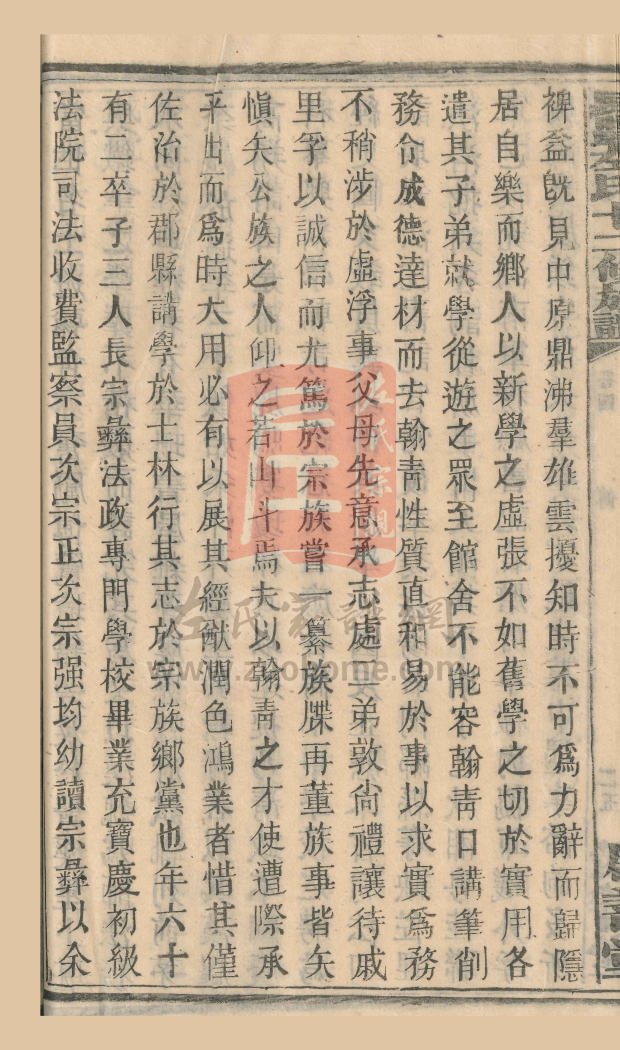 裨益旣見中原鼎沸羣雄雲擾知時不可爲力辭而歸隱
居自樂而鄉人以新學之虛張不如舊學之切於實用各
遣其子弟就學從遊之眾至館舍不能容翰靑口講筆削
務令成德達材而去翰靑性質直和易於事以求實爲務
不稍涉於虛浮事父母先意承志處三弟敦尙禮讓待戚
里孚以誠信而尤篤於宗族嘗一纂族牒再董族事皆矢
愼矢公族之人仰之若山斗焉夫以翰靑之才使遭際承
平出而爲時大用必有以展其經猷潤色鴻業者惜其僅
佐治於郡縣講學於士林行其志於宗族鄉黨也年六十
有二卒子三人長宗彝法政專門學校畢業充寶慶初級
法院司法收費監察員次宗正次宗强均幼讀宗彝以余
左氏家譜網
www.zuohome.com